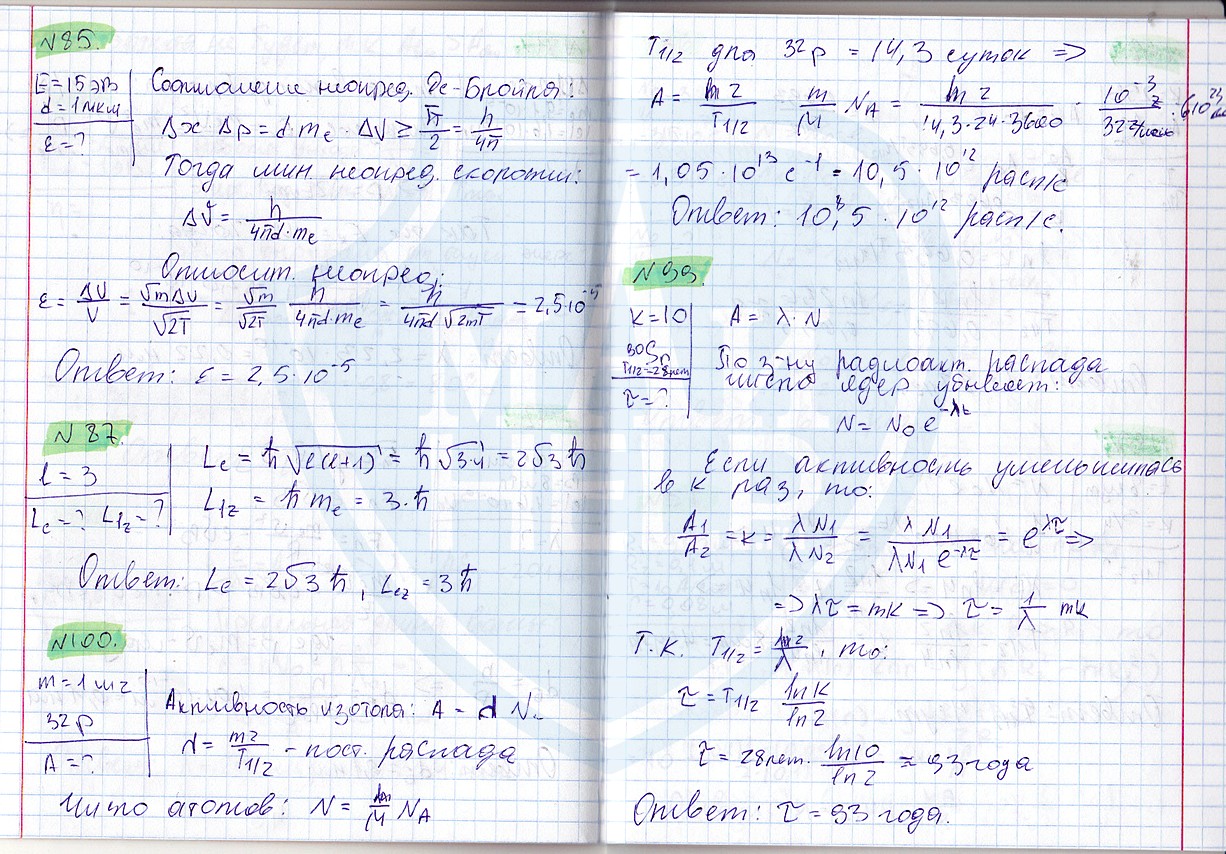 №85.
E=15эВ
d=1мкм
ε=?
Соотношение неопред. Де-Бройля:
Δx·Δp = d·mₑ·ΔV ≥ ħ/2 = h/4π
Тогда мин. неопред. скорости:
ΔV = h/(4πd·mₑ)
Относит. неопред.:
ε = ΔV/V = √m ΔV/√2T = √m/√2T · h/(4πd·mₑ) = h/(4πd √2mT) = 2,5·10⁻⁵
Ответ: ε = 2,5·10⁻⁵
№87.
l = 3
Lₑ=? L₁z=?
Lₑ = ħ√(l(l+1)) = ħ√3·4 = 2√3 ħ
L₁z = ħ mₑ = 3·ħ
Ответ: Lₑ = 2√3 ħ, Lₑz = 3ħ
№100.
m=1мг
32P
A=?
Активность изотопа: A = λ N.
λ = ln2/T1/2 - пост. распада
Число атомов: N = m/M NA
T1/2 для 32P = 14,3 суток =>
A = ln2/T1/2 · m/M NA = ln2/(14,3·24·3600) · 10⁻³г/(32г/моль) · 6·10²³
= 1,05·10¹³ с⁻¹ = 10,5·10¹² расп/с
Ответ: 10,5·10¹² расп/с.
№99.
k=10
90Sr
T1/2=28лет
τ=?
A = λ·N
По з-ну радиоакт. распада
число ядер убывает:
N = N₀e^-λt
Если активность уменьшилась
в к раз, то:
A₁/A₂ = к = λN₁/λN₂ = λN₁/(λN₁e^-λτ) = e^λτ =>
=> λτ = lnк => τ = 1/λ lnк
Т.к. T1/2 = ln2/λ, то:
τ = T1/2 lnк/ln2
τ = 28лет · ln10/ln2 ≈ 93года
Ответ: τ = 93 года.